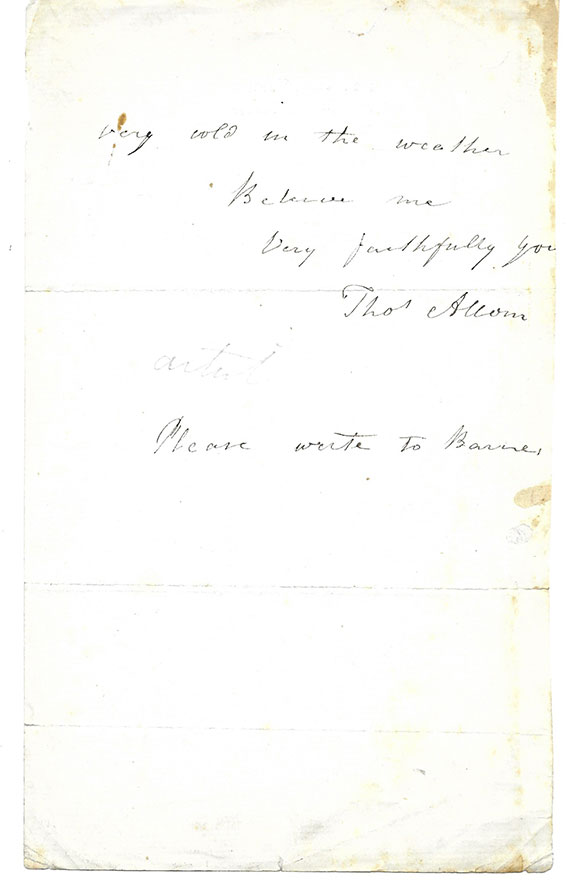 very cold in the weather
Believe me
Very faithfully you
Thos Allom
artist
Please write to Barnes